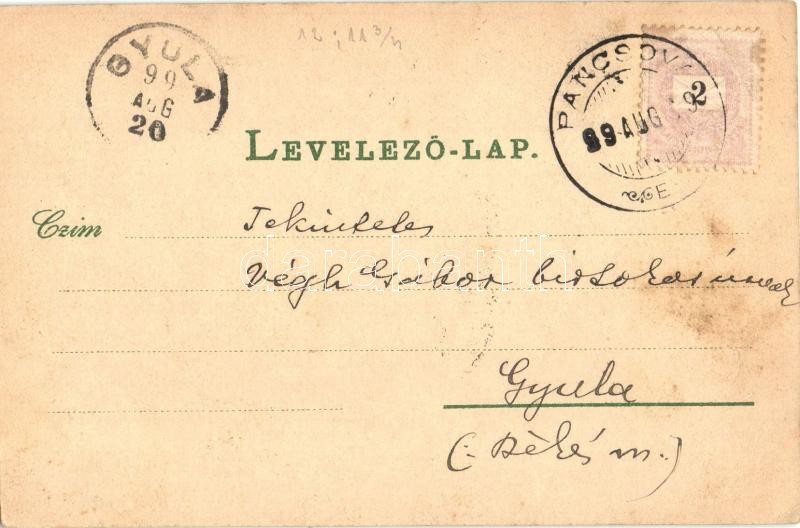 12 ; 11 3/4
GYULA
99
AUG
20
PANCSOVA
99 AUG 19
E
2
LEVELEZŐ-LAP.
Czim
Tekintetes
Végh Gábor
Gyula
(: Békés m.)